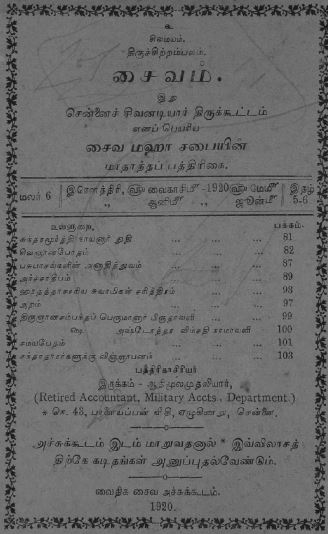 உ
சிவமயம்.
திருச்சிற்றம்பலம்.
சைவம்.
இது
சென்னைச் சிவனடியார் திருக்கூட்டம்
எனப் பெயரிய
சைவ மஹா சபையின்
மாதாந்தப் பத்திரிகை.
மலர் 6 இரௌத்திரி, வைகாசிமீ -1920 மேமீ இதழ்
ஆனிமீ „ ஜூன்மீ 5-6
உள்ளுறை. பக்கம்.
சுந்தரமூர்த்தி நாயனார் துதி ... ... ... 81
சிவஞானபோதம் ... ... ... 82
பசுபாசங்களின் அநாதித்துவம் ... ... 87
அர்ச்சாதீபம் ... ... ... 89
சுவாமிகள் சரித்திரம் ... ... 93
அறம் ... ... ... 97
திருஞானசம்பந்தப் பெருமானார் ... ... 99
ஷை அஷ்டோத்தர ... 100
சமயபேதம் ... ... ... 101
சந்தாதாரர்களுக்கு விஞ்ஞாபனம் ... ... 103
பத்திராசிரியர்
இருக்கம் - ஆதிமூலமுதலியார்,
(Retired Accountant, Military Accts., Department.)
* செ. 43, வீதி, எழுமினூர், சென்னை.
அச்சுக்கூடம் இடம் மாறுவதனால் * இவ்விலாசத்
திற்கே கடிதங்கள் அனுப்புதல்வேண்டும்.
வைதிக சைவ அச்சுக்கூடம்.
1920.